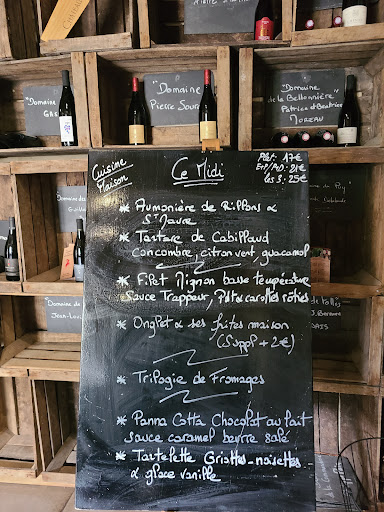 Domaine
Pierre Sour
"Domaine
de la Bellonnière"
Patrice et Béatrice
MOREAU
Domaine
Cuisine
Maison
Ce Midi
Plat: 17€
E+P/P+D: 21€
les 3: 25€
* Aumonière de Rillons &
Ste Maure
* Tartare de Cabillaud
Concombre, citron vert, guacamol
* Filet Mignon basse température
Sauce Trappeur, P. carottes rôties
* Onglet & ses frites maison
(Suppl + 2€)
* Trilogie de Fromages
* Panna Cotta Chocolat au lait
sauce caramel beurre salé
* Tartelette Griottes-noisettes
& glace vanille
Domaine des
Domaine de
Jean-Loui